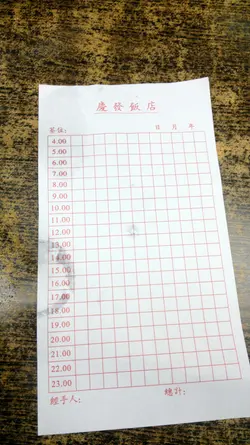 慶發飯店
茶位： 日 月 年
4.00
5.00
6.00
7.00
8.00
9.00
10.00
11.00
12.00
13.00
14.00
15.00
16.00
17.00
18.00
19.00
20.00
21.00
22.00
23.00
經手人： 總計：